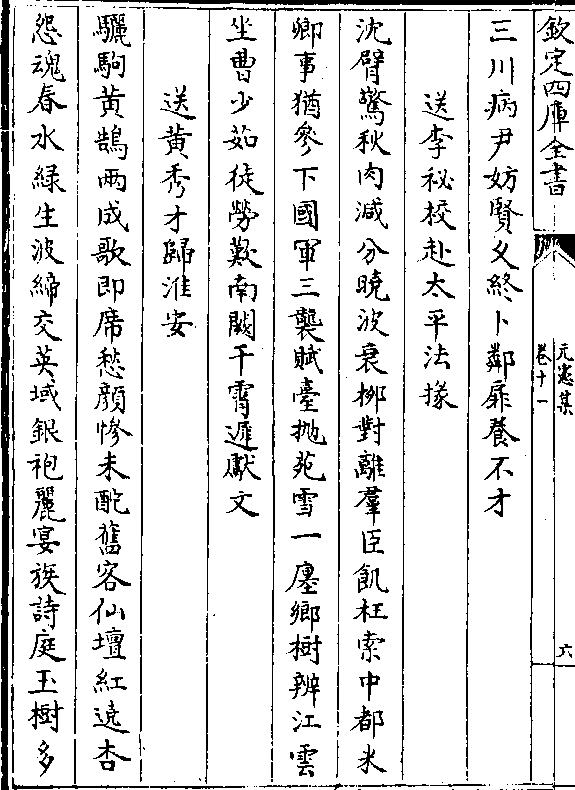 欽定四庫全書
元憲集
卷十一
六
三川病尹妨賢乆終卜鄰扉養不才
送李祕校赴太平法掾
沈臂驚秋肉減分曉波衰栁對離羣臣飢枉索中都米
卿事猶參下國軍三襲賦臺抛苑雪一廛鄉樹辨江雲
坐曹少茹徒勞歎南闕干霄遞獻文
送黄秀才歸淮安
驪駒黄鵠兩成歌即席愁顔慘未酡舊客仙壇紅遶杏
怨魂春水緑生波締交英域銀袍麗宴族詩庭玉樹多